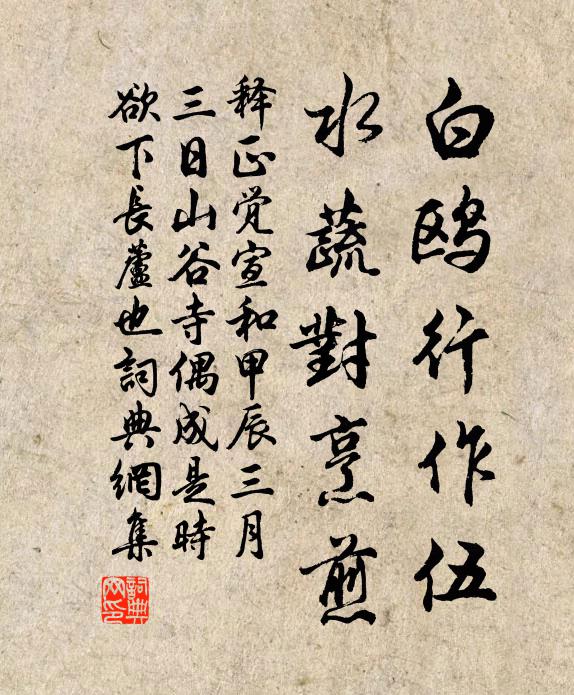 白鸥行作伍
水蔬對烹煎
释正觉宣和甲辰三月
三日山谷寺偶成是時
欲下長蘆也詞典網集
詞典网印